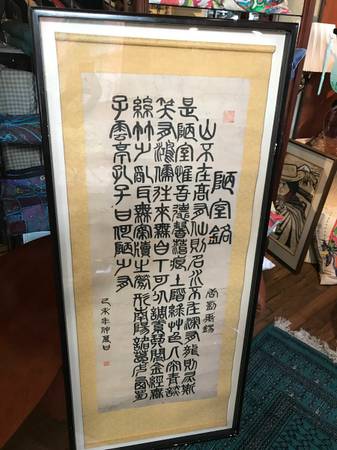 陋室銘
唐劉禹錫
山不在高有仙則名水不在深有龍則靈斯
是陋室惟吾德馨苔痕上階綠草色入簾青談
笑有鴻儒往來無白丁可以調素琴閱金經無
絲竹之亂耳無案牘之勞形南陽諸葛廬西蜀
子雲亭孔子曰何陋之有
己未年仲夏日